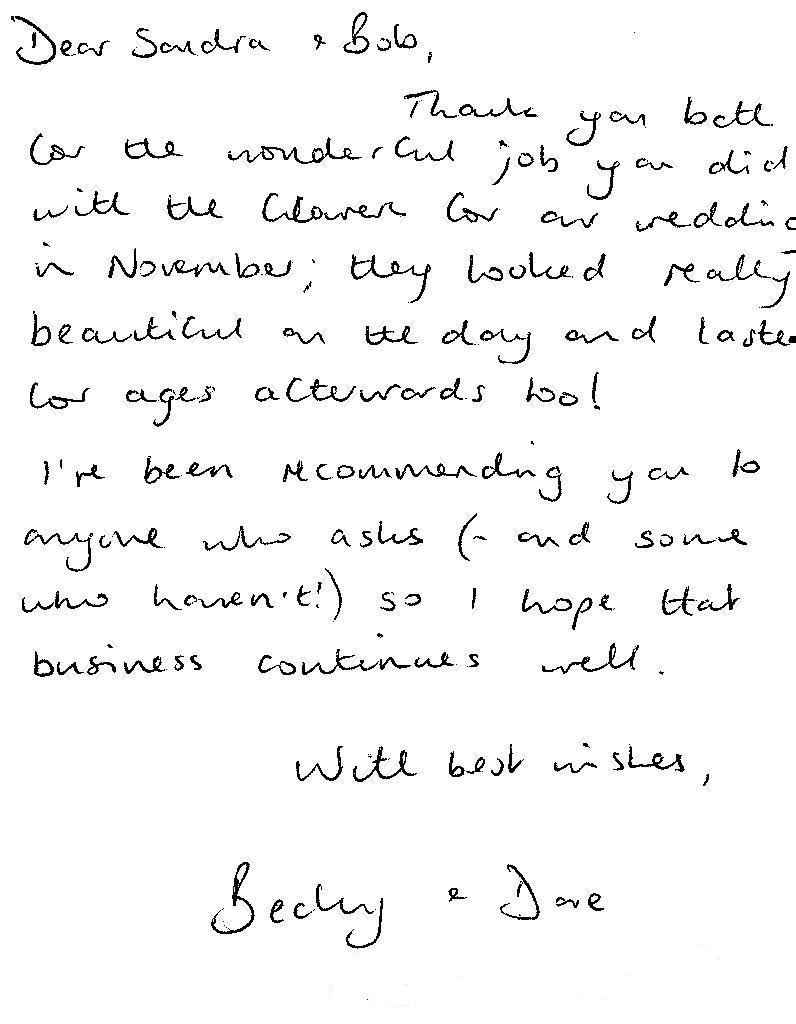 Dear Sandra & Bob,
Thank you both
for the wonderful job you did
with the flowers for our wedding
in November; they looked really
beautiful on the day and lasted
for ages afterwards too!
I've been recommending you to
anyone who asks (- and some
who haven't!) so I hope that
business continues well.
With best wishes,
Becky & Dave